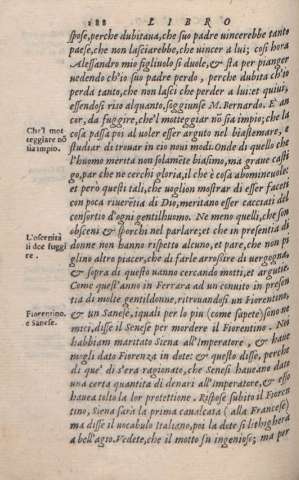 188 LIBRO
spose, perche dubitaua, che suo padre uincerebbe tanto
paese, che non lasciarebbe, che uincer a lui; così hora
Alessandro mio figliuolo si duole, & sta per pianger
uedendo ch'io suo padre perdo, perche dubita ch'io
perda tanto, che non lasci che perder a lui: et quiui,
essendosi riso alquanto, soggiunse M. Bernardo. E an
cor, da fuggire, che'l motteggiar nō sia impio; che la
cosa passa poi al uoler esser arguto nel biastemare, e
studiar di trouar in ciò noui modi. Onde di quello che
l'huomo merita non solamēte biasimo, ma graue casti
go, par che ne cerchi gloria, il che è cosa abominuole:
et però questi tali, che uoglion mostrar di esser faceti
con poca riuerētia di Dio, meritano esser cacciati del
consortio d'ogni gentilhuomo. Ne meno quelli, che son
obsceni & sporchi nel parlare; et che in presentia di
donne non hanno rispetto alcuno, et pare, che non pi
glino altro piacer, che di farle arrossire di uergogna,
& sopra di questo uanno cercando motti, et argutie.
Come quest'anno in Ferrara ad un conuito in presen
tia di molte gentildonne, ritrouandosi un Fiorentino,
& un Sanese, iquali per lo piu (come sapete) sono ne
mici, disse il Senese per mordere il Fiorentino. Noi
habbiam maritato Siena all'Imperatore, & haue
mogli dato Fiorenza in dote: & questo disse, perche
di que' dì s'era ragionato, che Senesi haueano dato
una certa quantita di denari all'Imperatore, & esso
hauea tolto la lor protettione. Rispose subito il Fioren
tino, Siena sarà la prima caualcata (alla Francese)
ma disse il uocabulo Italiano, poi la dote si litigherà
a bell'agio. Vedete, che il motto fu ingenioso; ma per
Che'l mot
teggiare nō
sia impio.
L'oscenità
si dee fuggi
re.
Fiorentino.
e Sanese.